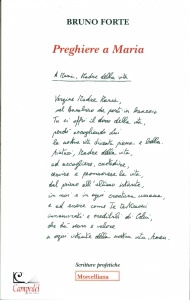 BRUNO FORTE
Preghiere a Maria
A Maria, Madre della vita
Vergine Madre Maria,
nel Bambino che porti in braccio
Tu ci offri il dono della vita,
perché accogliendo lui
la nostra vita diventi piena e bella.
Aiutaci, Madre della vita,
ad accogliere, custodire,
servire e promuovere la vita,
dal primo all'ultimo istante,
in noi e in ogni creatura umana,
e ad essere come Te testimoni
innamorati e credibili di Colui,
che dà senso e valore
a ogni istante della nostra vita. Amen.
Scritture profetiche
Morcelliana
Campolci